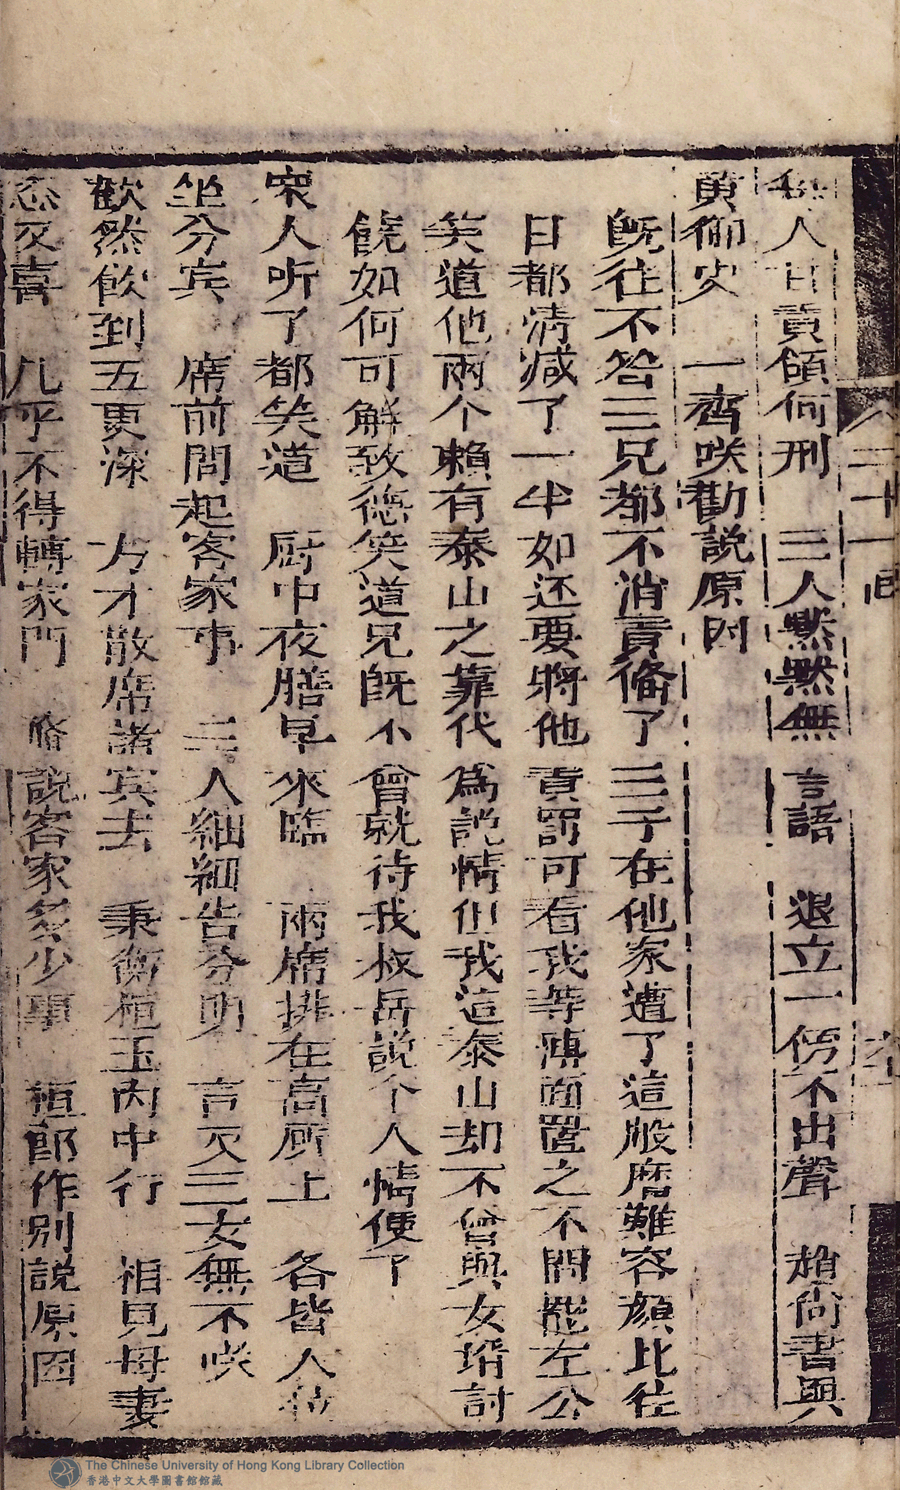 人甘責領何刑 三人默默無言語 退立一傍不出聲 趙尚書與
黄御史 一齊咲勸說原因
既往不咎三兄都不消責俻了三子在他家遭了這般磨難容顏比往
日都清减了一半如还要將他責罰可看我等薄面置之不問罷左公
笑道他兩个賴有泰山之靠代為說情但我這泰山却不曾與女壻討
饒如何可解致德笑道兄既不曾就待我叔岳說个人情便了
衆人听了都笑道 厨中夜膳早來臨 兩席排在高所上 各皆人
坐分宾 席前問起客家事 二人細細告分明 言及三女無不咲
歡然飲到五更深 方才散席諸宾去 秉衡桓玉内中行 相見母妻
悉又喜 几乎不得轉家門 俻說客家多少事 桓郎作别說原因
二十一囬
The Chinese University of Hong Kong Library Collection
香港中文大學圖書館館藏